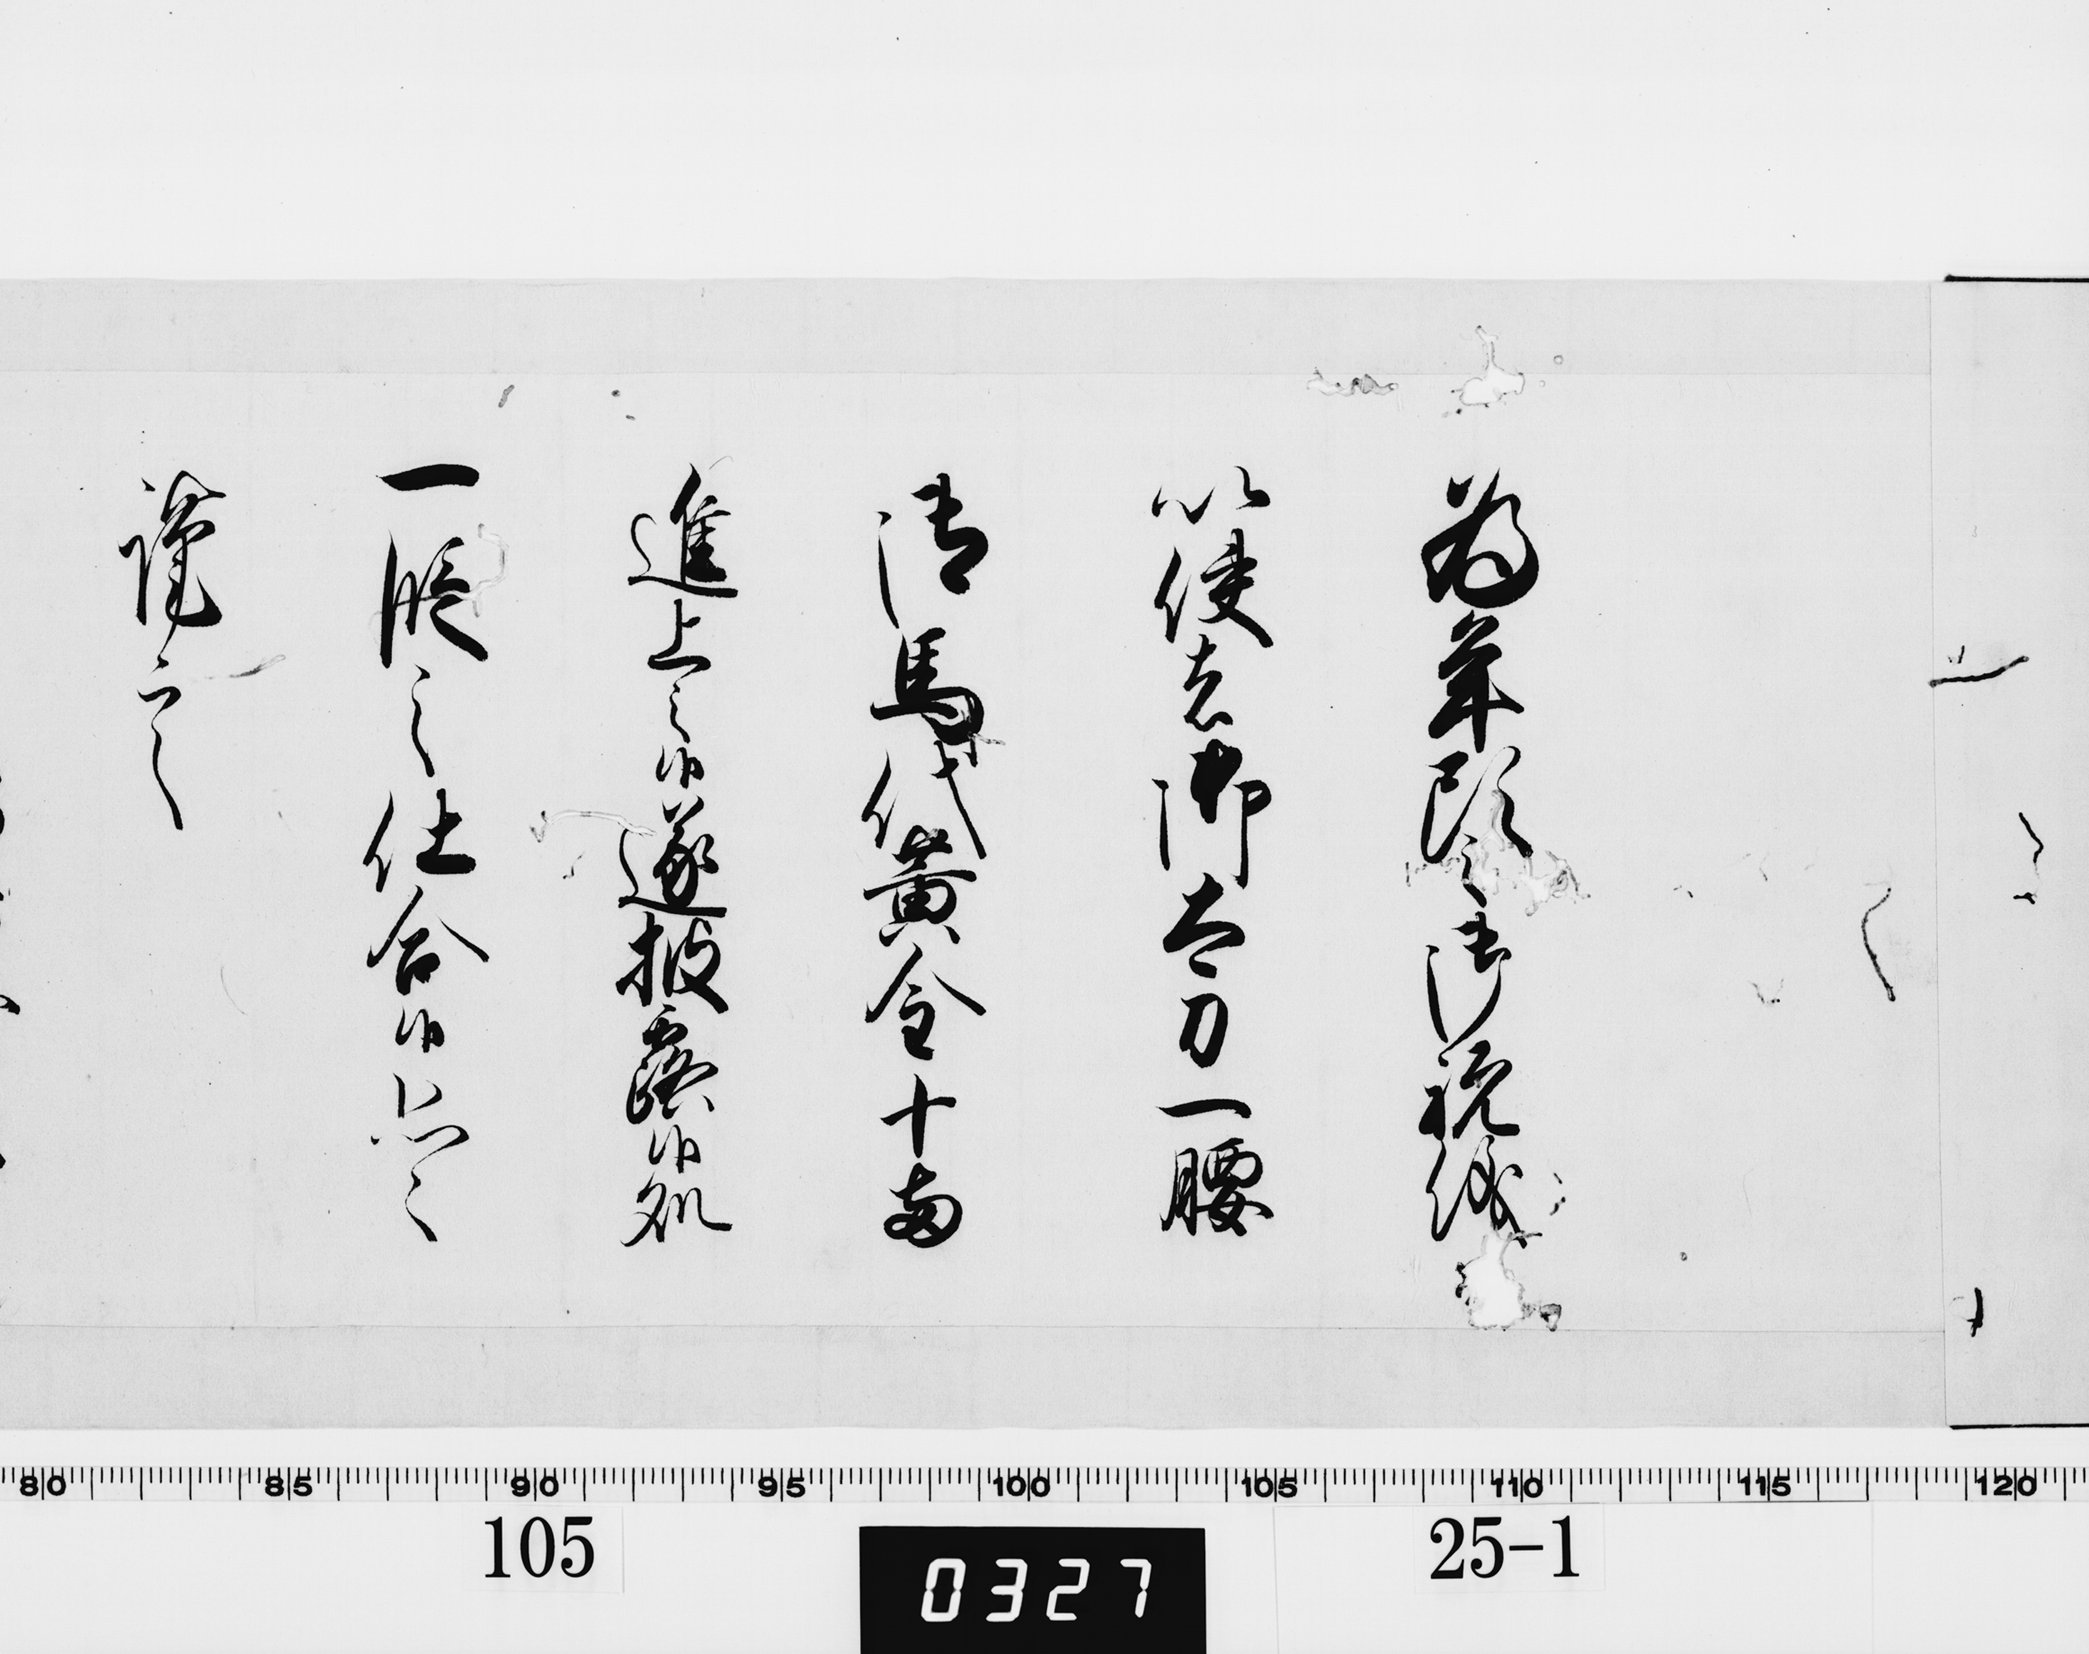 為年頭之御祝儀
以使者御太刀一腰
御馬代黄金十両
進上之候遂披露候処
一段之仕合候恐々
謹言
80 85 90 95 100 105 110 115 120
105 25-1
0327